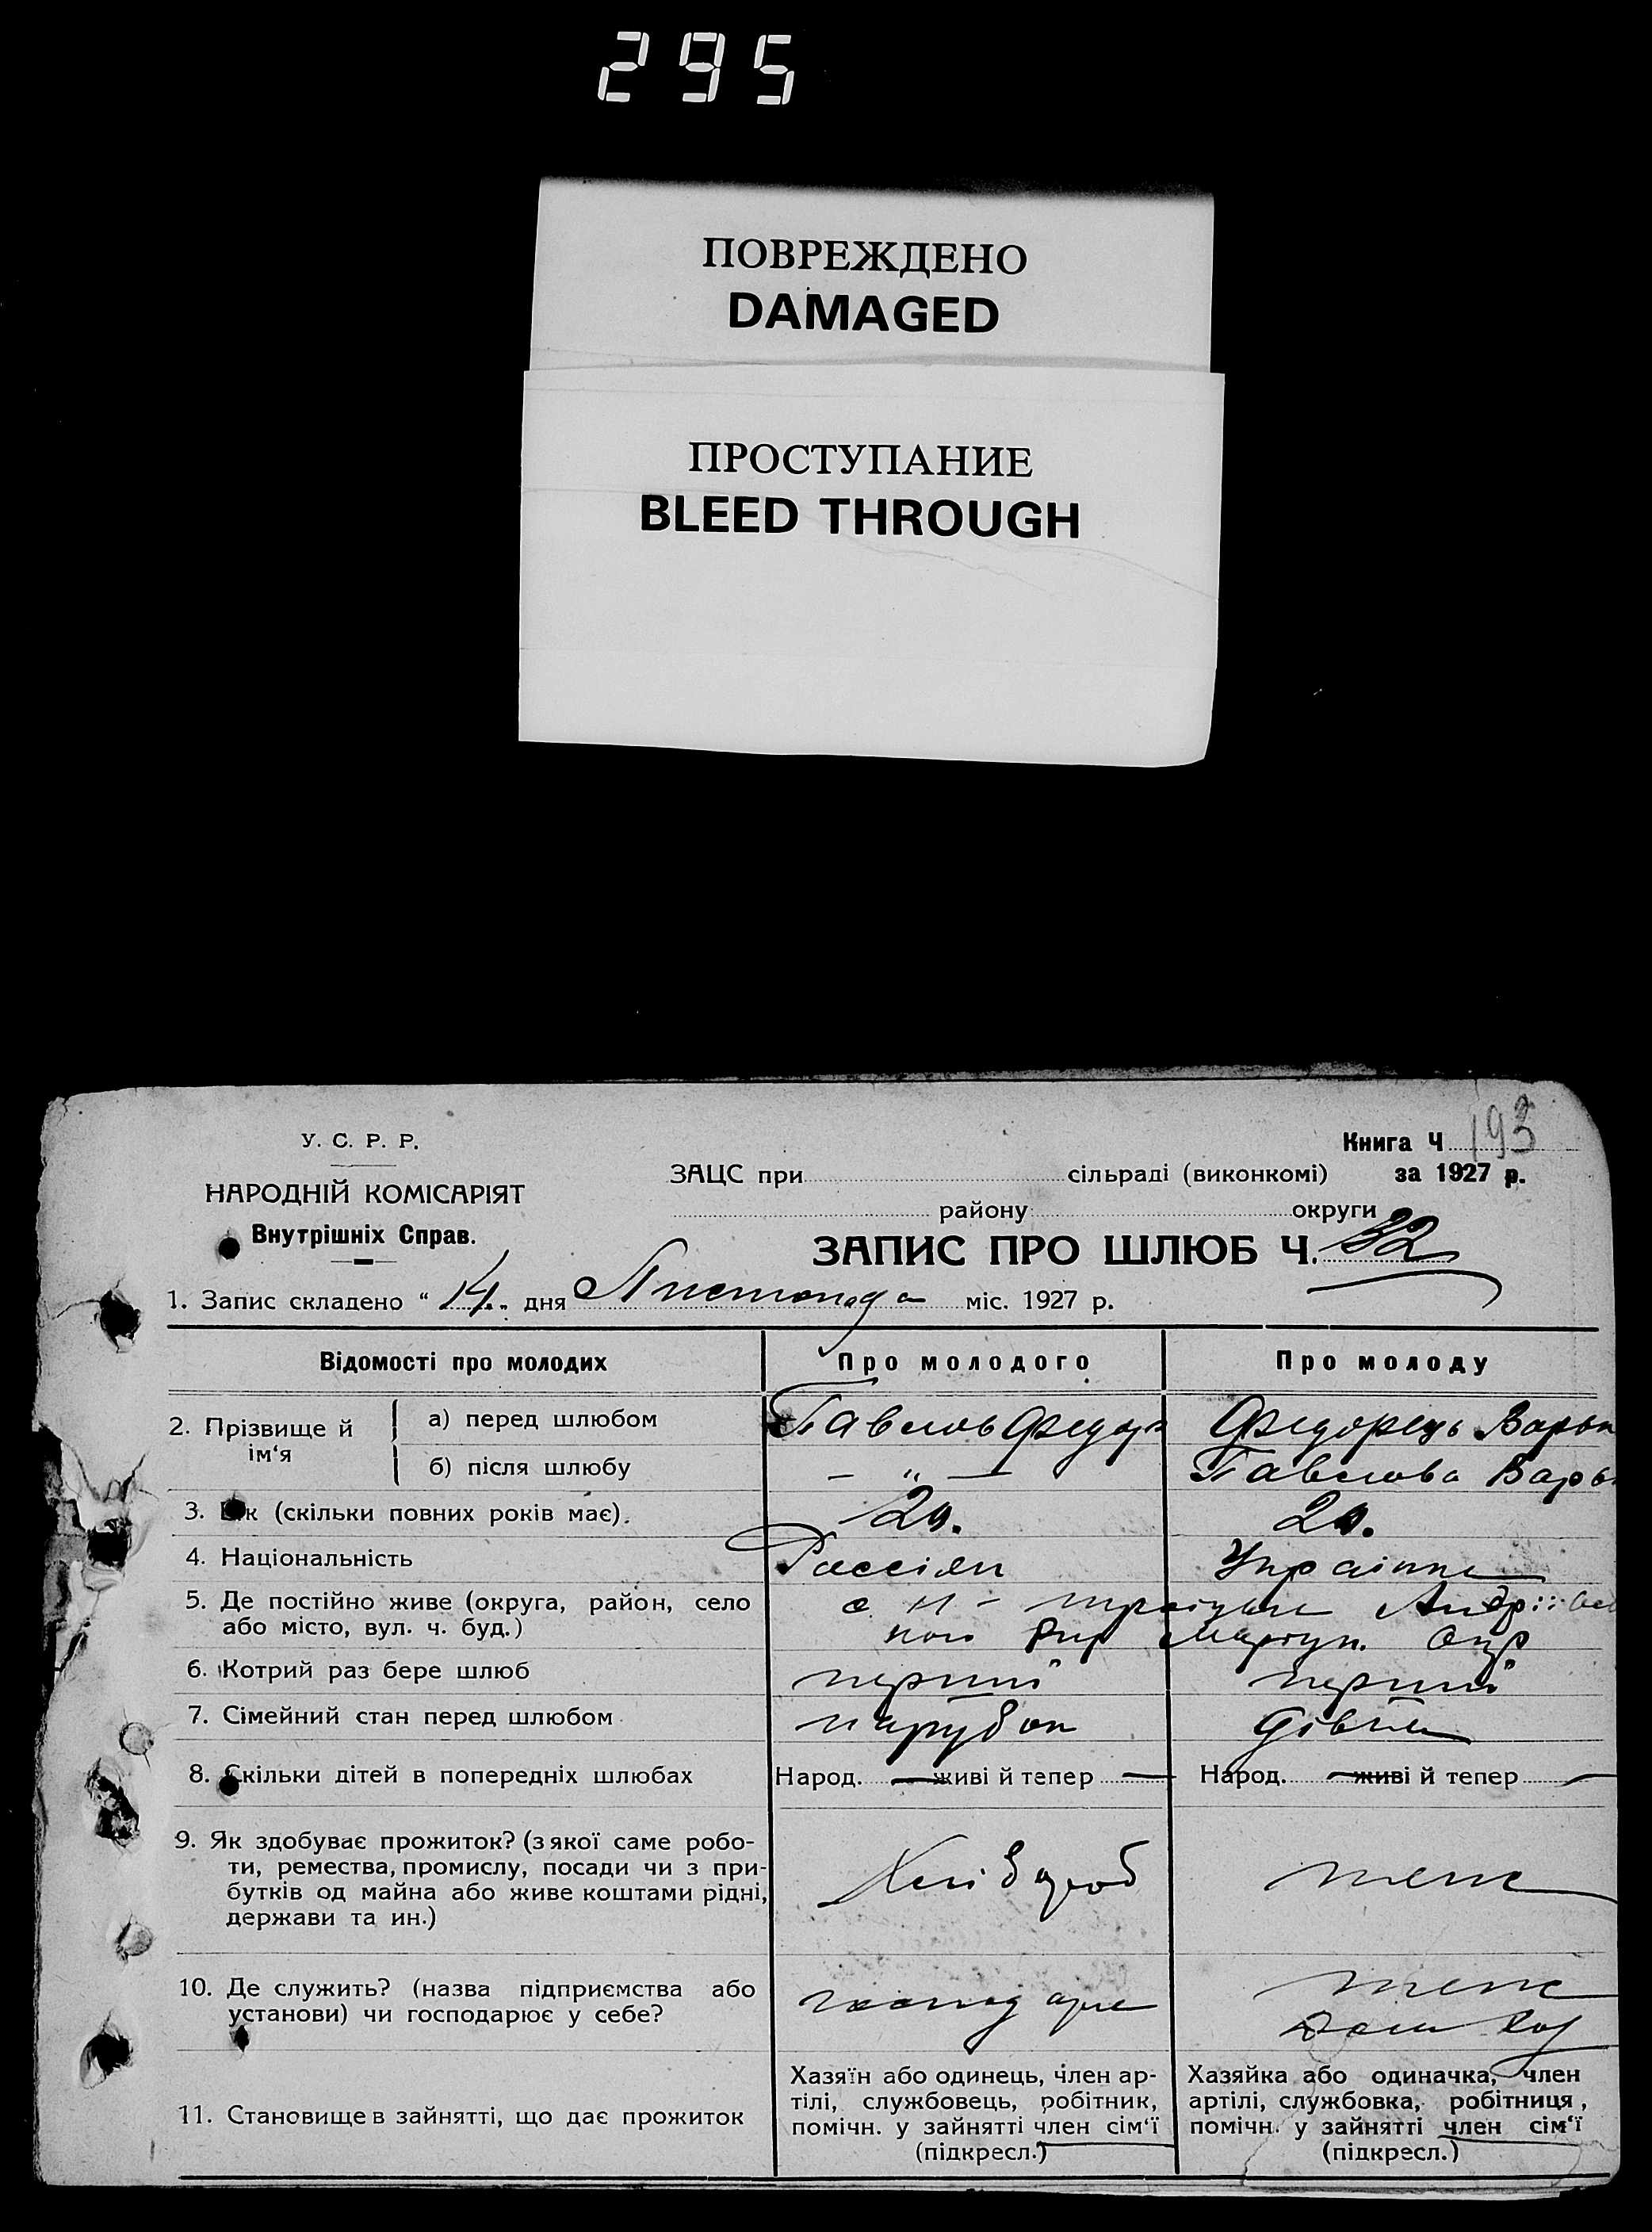 295
ПОВРЕЖДЕНО
DAMAGED
ПРОСТУПАНИЕ
BLEED THROUGH
У. С. Р. Р.
НАРОДНІЙ КОМІСАРІЯТ
Внутрішніх Справ.
Книга Ч 193
ЗАЦС при сільраді (виконкомі) за 1927 р.
району округи
ЗАПИС ПРО ШЛЮБ Ч. 32
1. Запис складено " 14 " дня Листопада міс. 1927 р.
Відомості про молодих Про молодого Про молоду
2. Прізвище й ім‘я
а) перед шлюбом Павлов Федор Федорець Варька
б) після шлюбу — " — Павлова Варька
3. Вік (скільки повних років має). 20.
4. Національність Россіян Украінка
5. Де постійно живе (округа, район, село
або місто, вул. ч. буд.)
с. Н - Маріуп. Окр
6. Котрий раз бере шлюб перший перший
7. Сімейний стан перед шлюбом парубок дівка
8. Скільки дітей в попередніх шлюбах Народ. — живі й тепер — Народ. — живі й тепер —
9. Як здобуває прожиток? (з якої саме робо-
ти, ремества, промислу, посади чи з при-
бутків од майна або живе коштами рідні,
держави та ин.)
Хліборób теж
10. Де служить? (назва підприємства або
установи) чи господарює у себе?
господарює теж
11. Становище в зайнятті, що дає прожиток
Хазяїн або одинець, член ар-
тілі, службовець, робітник,
помічн. у зайнятті член сім‘ї
(підкресл.)
Хазяйка або одиначка, член
артілі, службовка, робітниця,
помічн. у зайнятті член сім‘ї
(підкресл.)